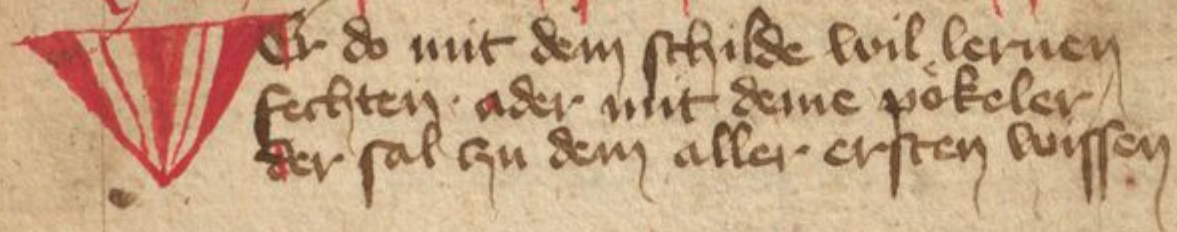 VEr do mit dem schilde wil lernen
fechten · ader mit deme pökeler /
der sal czu dem aller ersten wissen